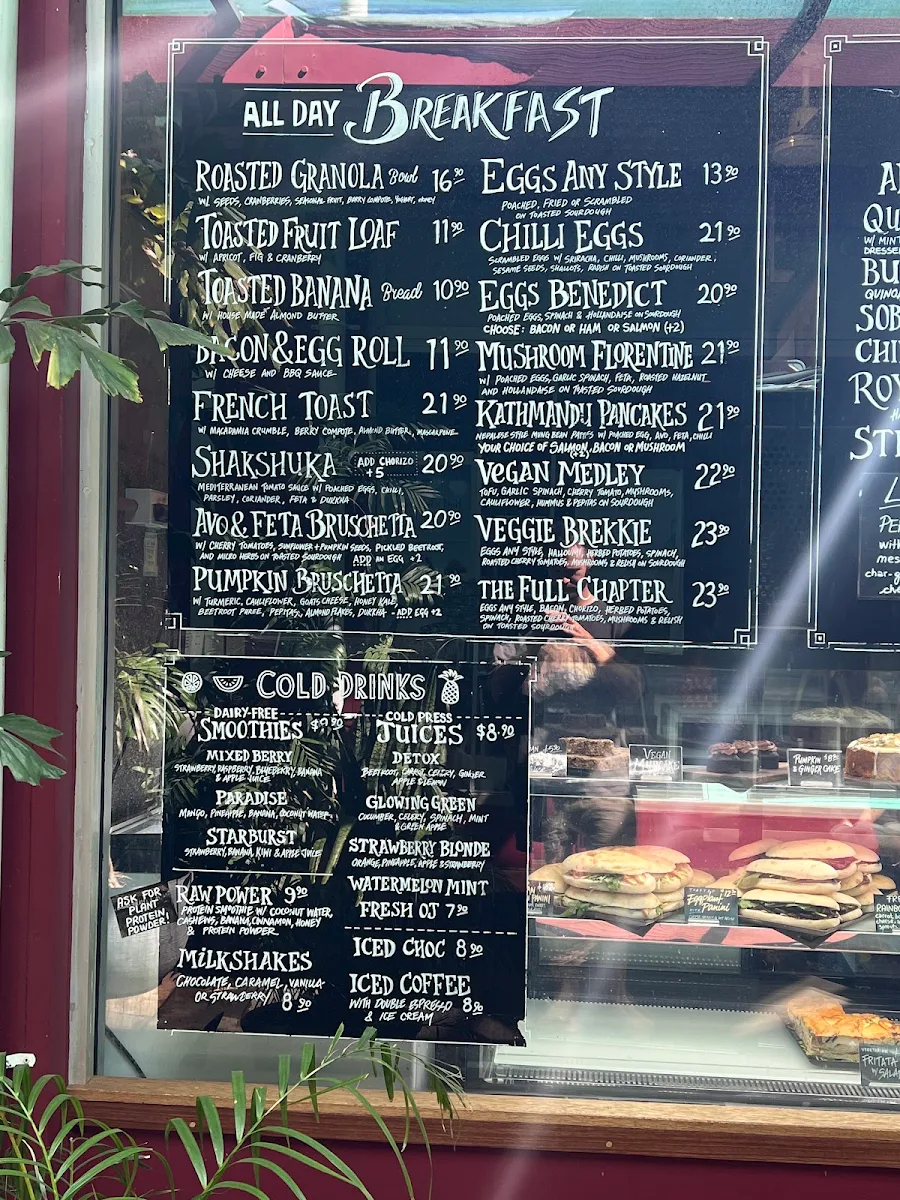 ALL DAY BREAKFAST
ROASTED GRANOLA Bowl 16.90
W/ SEEDS, CRANBERRIES, SEASONAL FRUIT, BERRY COMPOTE, YOGHURT, HONEY
TOASTED FRUIT LOAF 11.90
W/ APRICOT, FIG & CRANBERRY
TOASTED BANANA Bread 10.90
W/ HOUSE MADE ALMOND BUTTER
BACON & EGG ROLL 11.90
W/ CHEESE AND BBQ SAUCE
FRENCH TOAST 21.90
W/ MACADAMIA CRUMBLE, BERRY COMPOTE, ALMOND BUTTER, MASCARPONE
SHAKSHUKA ADD CHORIZO +5 20.90
MEDITERRANEAN TOMATO SAUCE W/ POACHED EGGS, CHILLI,
PARSLEY, CORIANDER, FETA & DUKKHA
AVO & FETA BRUSCHETTA 20.90
W/ CHERRY TOMATOES, SUNFLOWER + PUMPKIN SEEDS, PICKLED BEETROOT,
AND MICRO HERBS ON TOASTED SOURDOUGH ADD AN EGG +2
PUMPKIN BRUSCHETTA 21.90
W/ TURMERIC, CAULIFLOWER, GOATS CHEESE, HONEY KALE,
BEETROOT PUREE, PEPITAS, ALMOND FLAKES, DUKKHA - ADD EGG +2
EGGS ANY STYLE 13.90
POACHED, FRIED OR SCRAMBLED
ON TOASTED SOURDOUGH
CHILLI EGGS 21.90
SCRAMBLED EGGS W/ SRIRACHA, CHILLI, MUSHROOMS, CORIANDER,
SESAME SEEDS, SHALLOTS, RADISH ON TOASTED SOURDOUGH
EGGS BENEDICT 20.90
POACHED EGGS, SPINACH & HOLLANDAISE ON SOURDOUGH
CHOOSE: BACON OR HAM OR SALMON (+2)
MUSHROOM FLORENTINE 21.90
W/ POACHED EGGS, GARLIC SPINACH, FETA, ROASTED HAZELNUT
AND HOLLANDAISE ON TOASTED SOURDOUGH
KATHMANDU PANCAKES 21.90
NEPALESE STYLE MUNG BEAN PATTIES W/ POACHED EGG, AVO, FETA, CHILLI
YOUR CHOICE OF SALMON, BACON OR MUSHROOM
(+2)
VEGAN MEDLEY 22.90
TOFU, GARLIC SPINACH, CHERRY TOMATO, MUSHROOMS,
CAULIFLOWER, HUMMUS & PEPITAS ON SOURDOUGH
VEGGIE BREKKIE 23.90
EGGS ANY STYLE, HALLOUMI, HERBED POTATOES, SPINACH,
ROASTED CHERRY TOMATOES, MUSHROOMS & RELISH ON SOURDOUGH
THE FULL CHAPTER 23.90
EGGS ANY STYLE, BACON, CHORIZO, HERBED POTATOES,
SPINACH, ROASTED CHERRY TOMATOES, MUSHROOMS & RELISH
ON TOASTED SOURDOUGH
COLD DRINKS
DAIRY-FREE
SMOOTHIES
MIXED BERRY
STRAWBERRY, RASPBERRY, BLUEBERRY, BANANA
& APPLE JUICE
PARADISE
MANGO, PINEAPPLE, BANANA, COCONUT WATER
STARBURST
STRAWBERRY, BANANA, KIWI & APPLE JUICE
RAW POWER 9.90
PROTEIN SMOOTHIE W/ COCONUT WATER,
CASHEWS, BANANA, CINNAMON, HONEY
& PROTEIN POWDER
ASK FOR
PLANT
PROTEIN
POWDER
MILKSHAKES
CHOCOLATE, CARAMEL, VANILLA
OR STRAWBERRY 8.90
COLD PRESS
JUICES $8.90
DETOX
BEETROOT, CARROT, CELERY, GINGER
APPLE & LEMON
GLOWING GREEN
CUCUMBER, CELERY, SPINACH, MINT
& GREEN APPLE
STRAWBERRY BLONDE
ORANGE, PINEAPPLE, APPLE & STRAWBERRY
WATERMELON MINT
FRESH OJ 7.90
ICED CHOC 8.90
ICED COFFEE
WITH DOUBLE ESPRESSO 8.90
& ICE CREAM
QU
W/ MINT
BU
SOB
CHI
ROY
ST
with
char-g
VEGAN
PUMPKIN
& GINGER CAKE
Eggplant
Panini
FRITATA
W/ SALAD